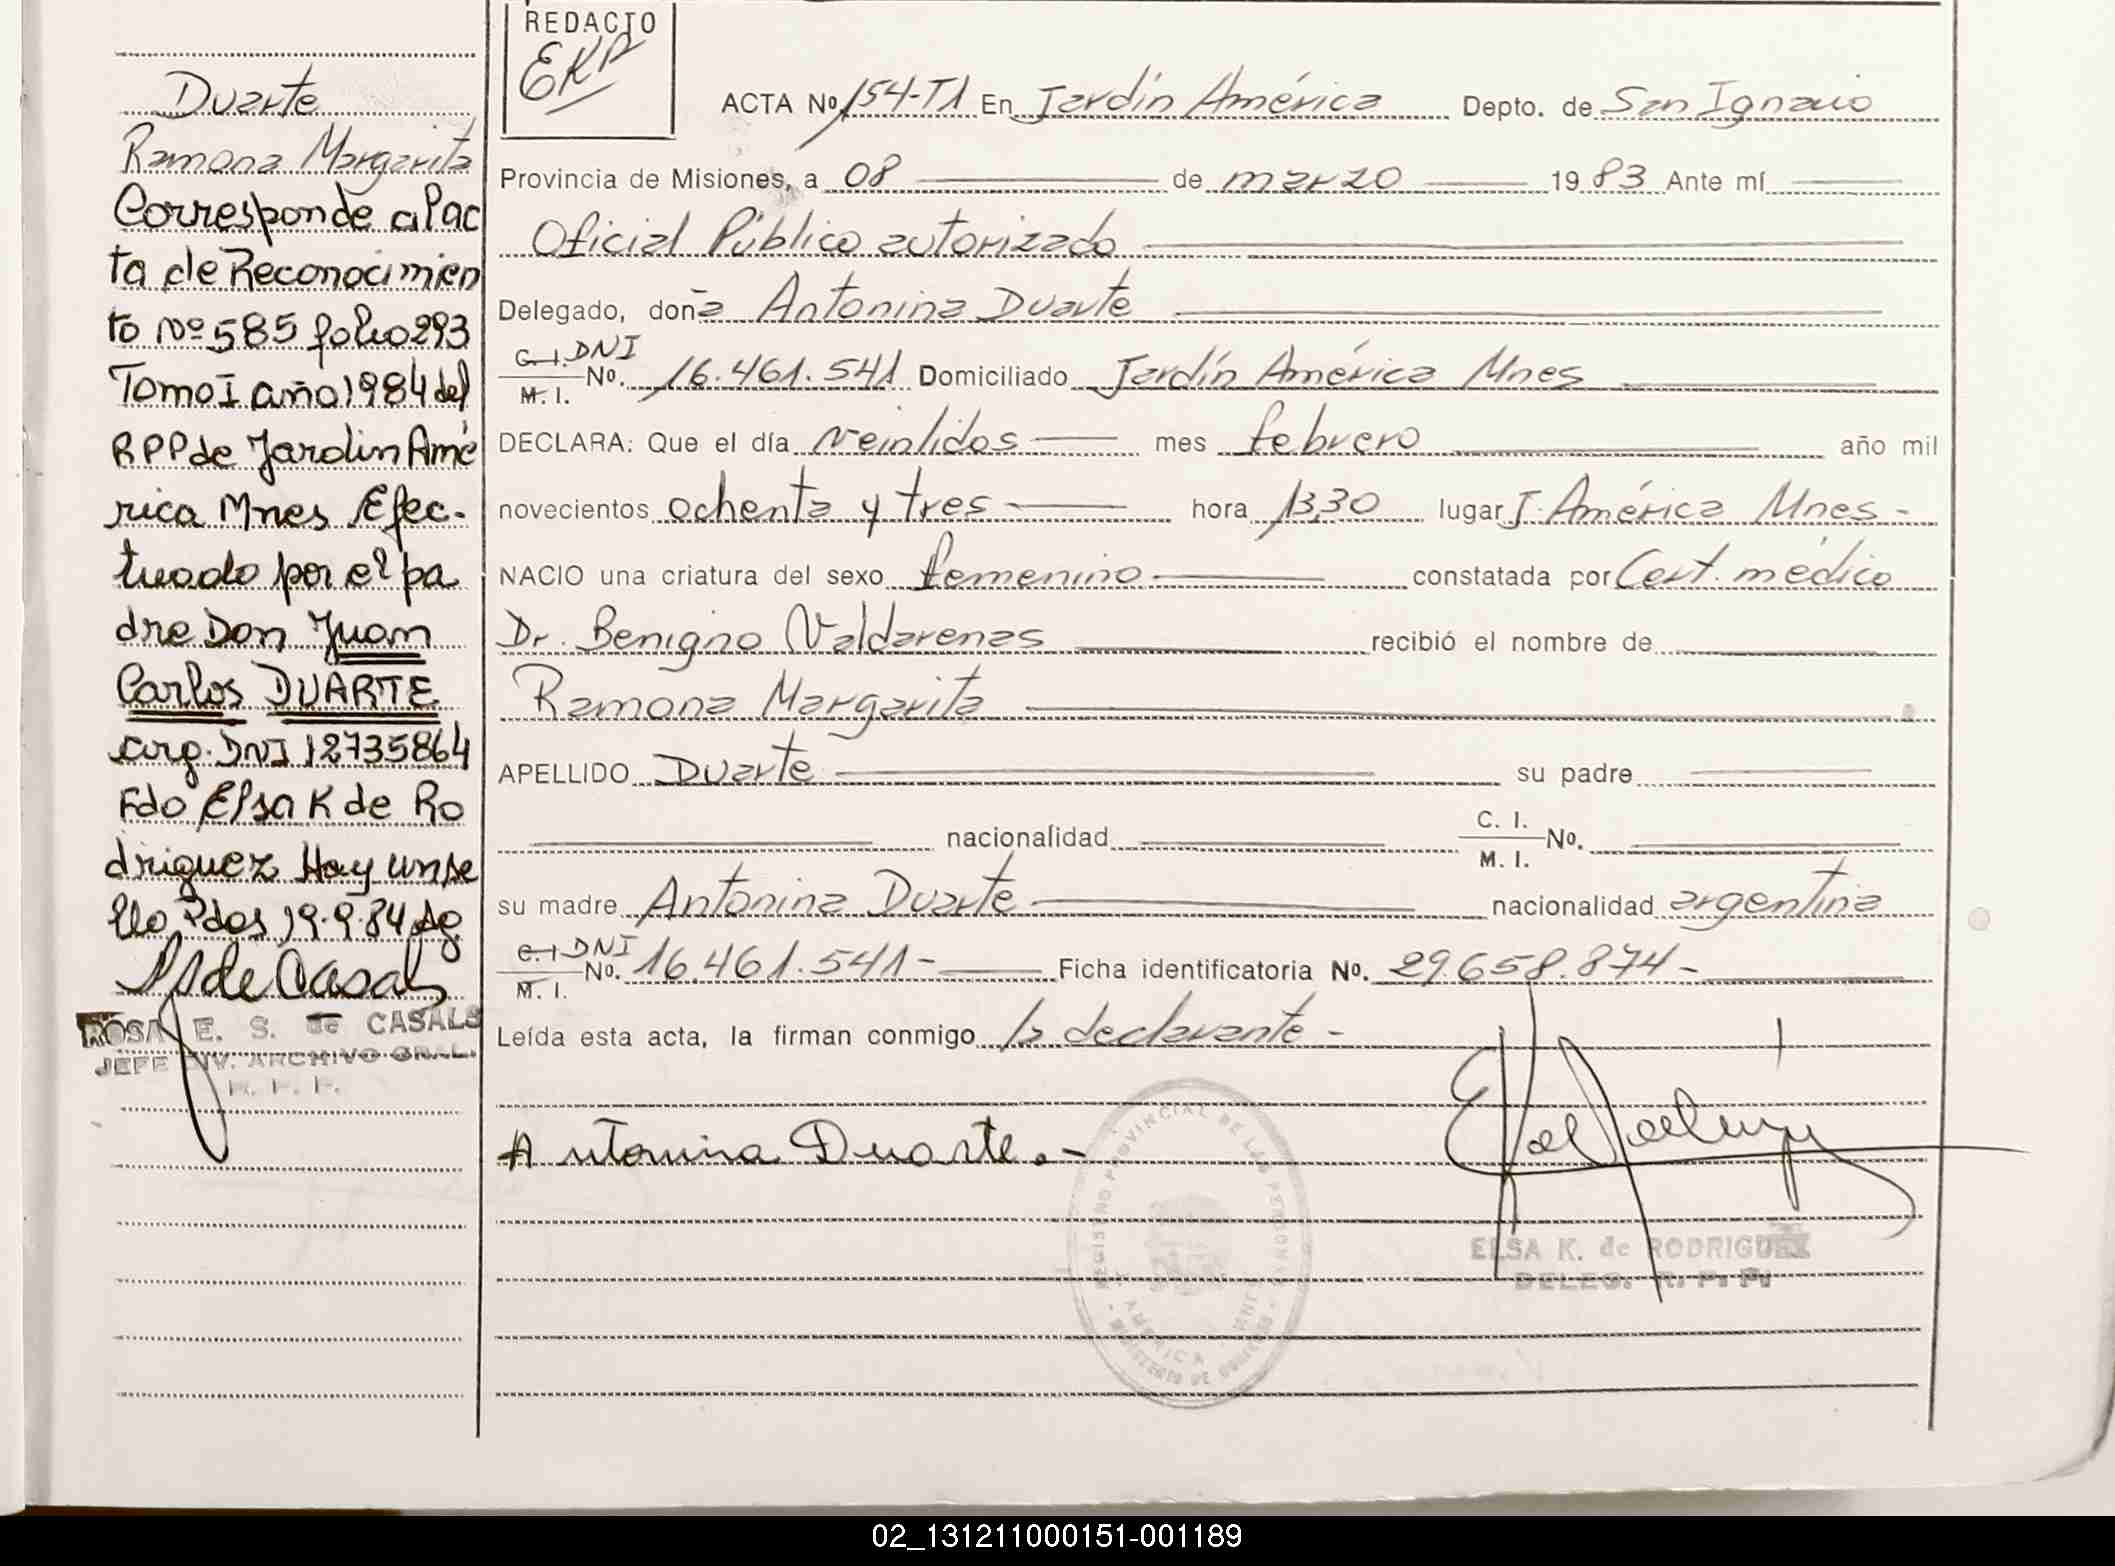 Duarte
Ramona Margarita
Corresponde al ac
ta de Reconocimien
to Nº 585 folio 293
Tomo I año 1984 del
RPP de Jardin Amé
rica Mnes Efec-
tuado por el pa
dre Don Juan
Carlos DUARTE
arg. DNI 12735864
Fdo Elsa K de Ro
driguez Hay un se
llo Pdas 19.9.84
de Casals
ROSA E. S. de CASALS
JEFE DIV. ARCHIVO GRAL.
R. P. P.
REDACTO
EKR
ACTA No 154-T1 En Jardín América Depto. de San Ignacio
Provincia de Misiones, a 08 de marzo 1983 Ante mí
Oficial Público autorizado
Delegado, doña Antonina Duarte
C. I. DNI
M. I. No. 16.461.541 Domiciliado Jardín América Mnes
DECLARA: Que el día veintidos mes febrero año mil
novecientos ochenta y tres hora 13,30 lugar J. América Mnes -
NACIO una criatura del sexo femenino constatada por Cert. médico
Dr. Benigno Valdarenas recibió el nombre de
Ramona Margarita
APELLIDO Duarte su padre
nacionalidad C. I. No.
M. I.
su madre Antonina Duarte nacionalidad argentina
C. I. DNI
M. I. No. 16.461.541- Ficha identificatoria No. 29.658.874-
Leída esta acta, la firman conmigo la declarante -
Antonina Duarte.-
REGISTRO PROVINCIAL DE LAS PERSONAS
AMERICA
MINISTERIO DE GOBIERNO
ELSA K. de RODRIGUEZ
DELEG. R. P. P.
02_131211000151-001189